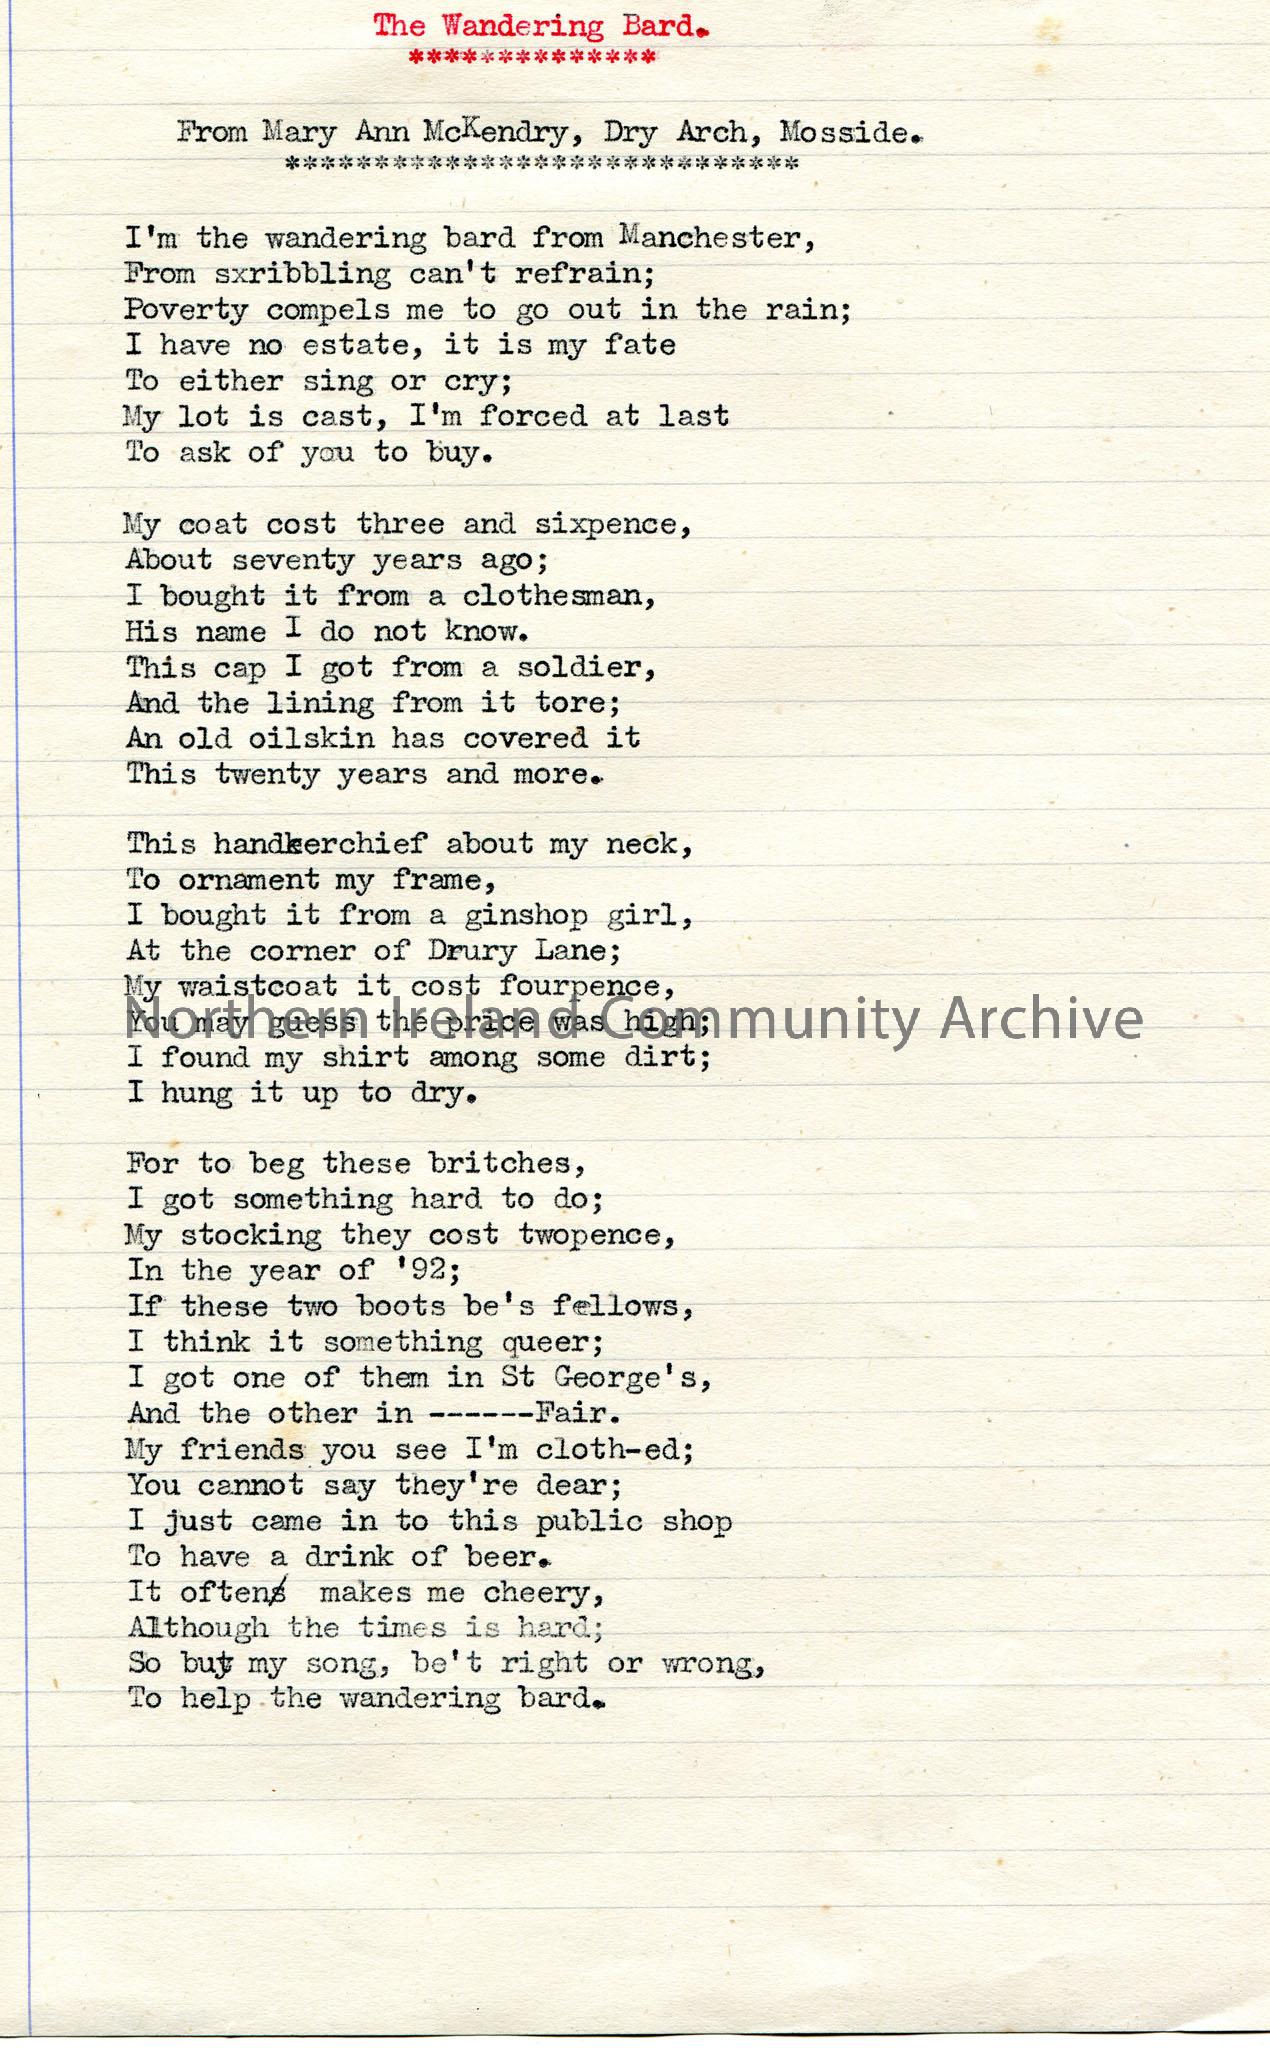 The Wandering Bard.
**************
From Mary Ann McKendry, Dry Arch, Mosside.
*****************************
I'm the wandering bard from Manchester,
From sxribbling can't refrain;
Poverty compels me to go out in the rain;
I have no estate, it is my fate
To either sing or cry;
My lot is cast, I'm forced at last
To ask of you to buy.
My coat cost three and sixpence,
About seventy years ago;
I bought it from a clothesman,
His name I do not know.
This cap I got from a soldier,
And the lining from it tore;
An old oilskin has covered it
This twenty years and more.
This handkerchief about my neck,
To ornament my frame,
I bought it from a ginshop girl,
At the corner of Drury Lane;
My waistcoat it cost fourpence,
You may guess the price was high;
Northern Ireland Community Archive
I found my shirt among some dirt;
I hung it up to dry.
For to beg these britches,
I got something hard to do;
My stocking they cost twopence,
In the year of '92;
If these two boots be's fellows,
I think it something queer;
I got one of them in St George's,
And the other in ------Fair.
My friends you see I'm cloth-ed;
You cannot say they're dear;
I just came in to this public shop
To have a drink of beer.
It often makes me cheery,
Although the times is hard;
So buy my song, be't right or wrong,
To help the wandering bard.